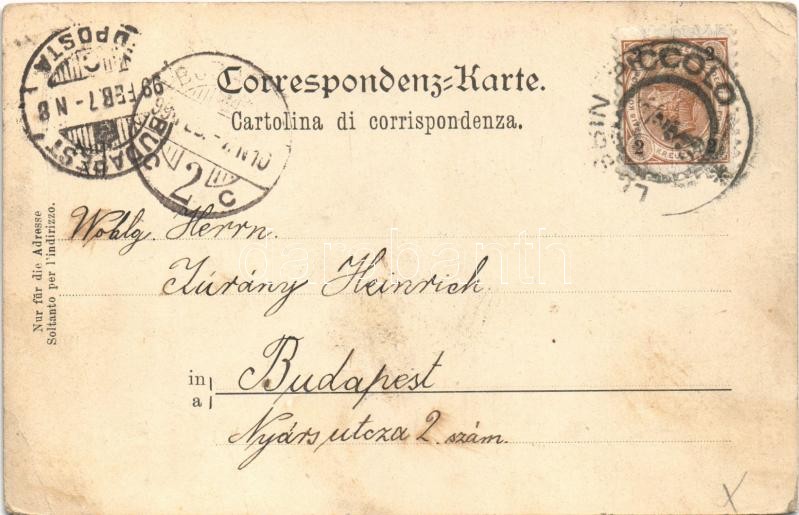 Correspondenz-Karte.
Cartolina di corrispondenza.
BUDAPEST
99 FEB. 7 - N 8
BUDAPEST
LUSSIN PICCOLO
2 2
Nur für die Adresse
Soltanto per l'indirizzo.
Wohlg. Herrn.
Túrány Heinrich
in
a
Budapest
Nyárs utcza 2. szám.
darabanth
X